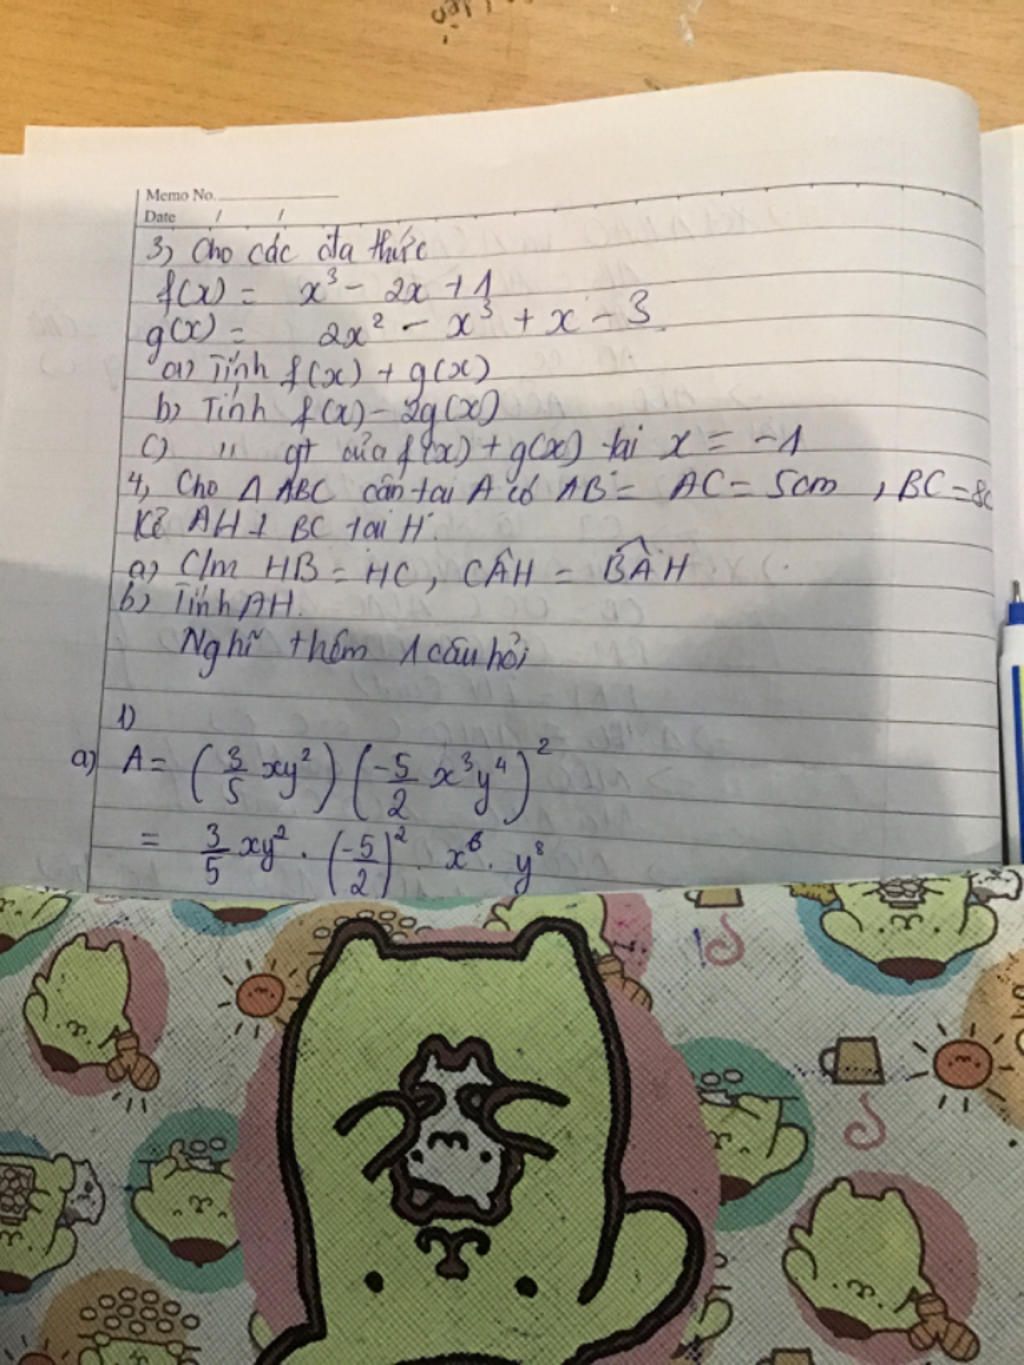 Memo No.
Date / /
3) Cho các đa thức
f(x) = x³ - 2x + 1
g(x) = 2x² - x³ + x - 3
a) Tính f(x) + g(x)
b) Tính f(x) - 2g(x)
c) " gt của f(x) + g(x) tại x = -1
4) Cho Δ ABC cân tại A có AB = AC = 5cm , BC = 8c
Kẻ AH ⊥ BC tại H.
a) C/m HB = HC, CÂH = BÂH
b) Tính AH.
Nghĩ thêm 1 câu hỏi
1)
a) A = (3/5 xy²) (-5/2 x³y⁴)²
= 3/5 xy² . (-5/2)² . x⁶ . y⁸